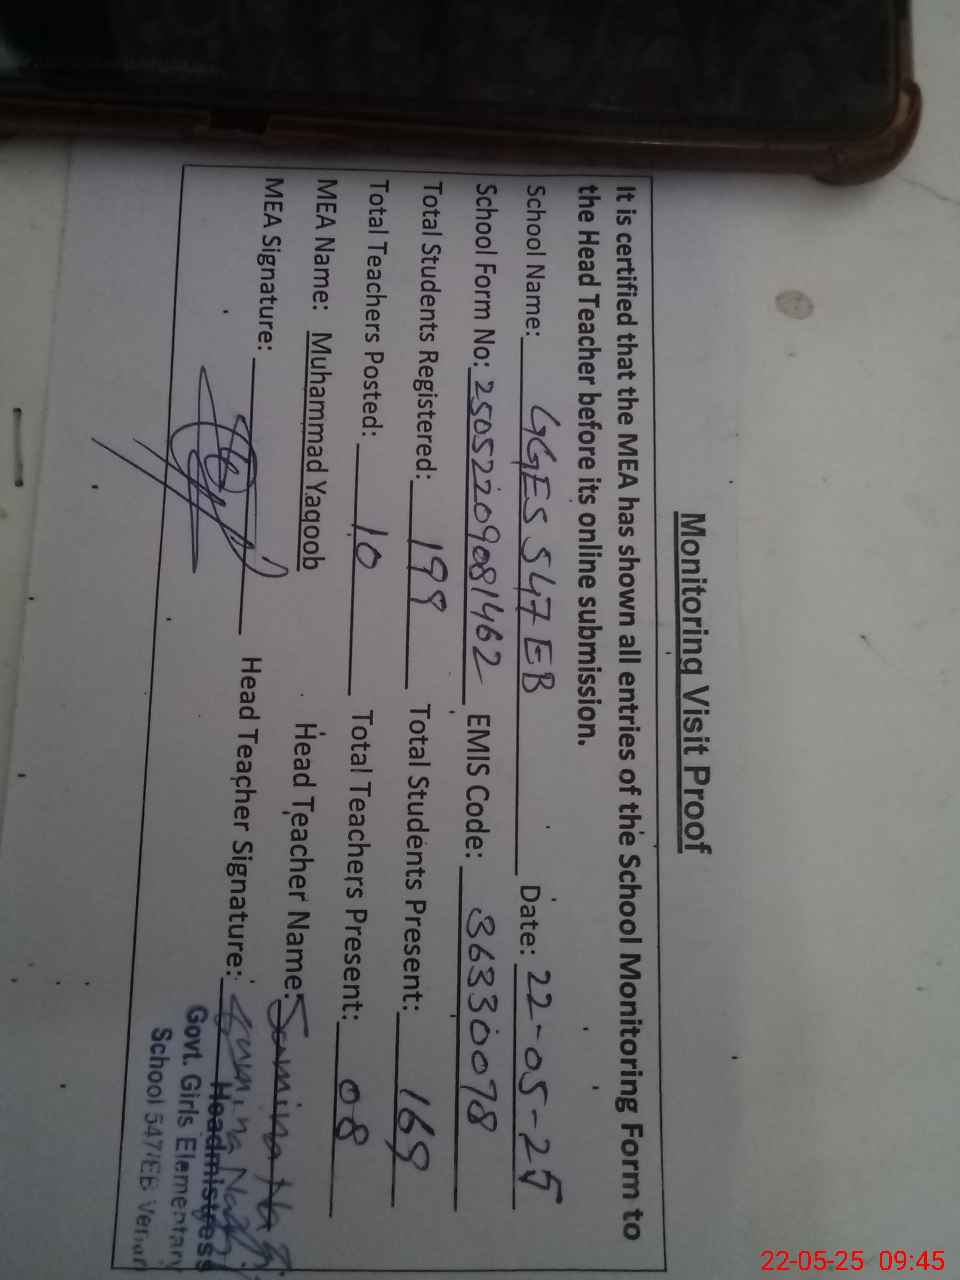 Monitoring Visit Proof
It is certified that the MEA has shown all entries of the School Monitoring Form to
the Head Teacher before its online submission.
School Name: GGES 547 EB Date: 22-05-25
School Form No: 2505220908 1462 EMIS Code: 36330078
Total Students Registered: 199 Total Students Present: 169
Total Teachers Posted: 10 Total Teachers Present: 08
MEA Name: Muhammad Yaqoob Head Teacher Name: Samina Naz
MEA Signature: Head Teacher Signature: Samina Naz
Headmistress
Govt. Girls Elementary
School 547/EB
22-05-25 09:45